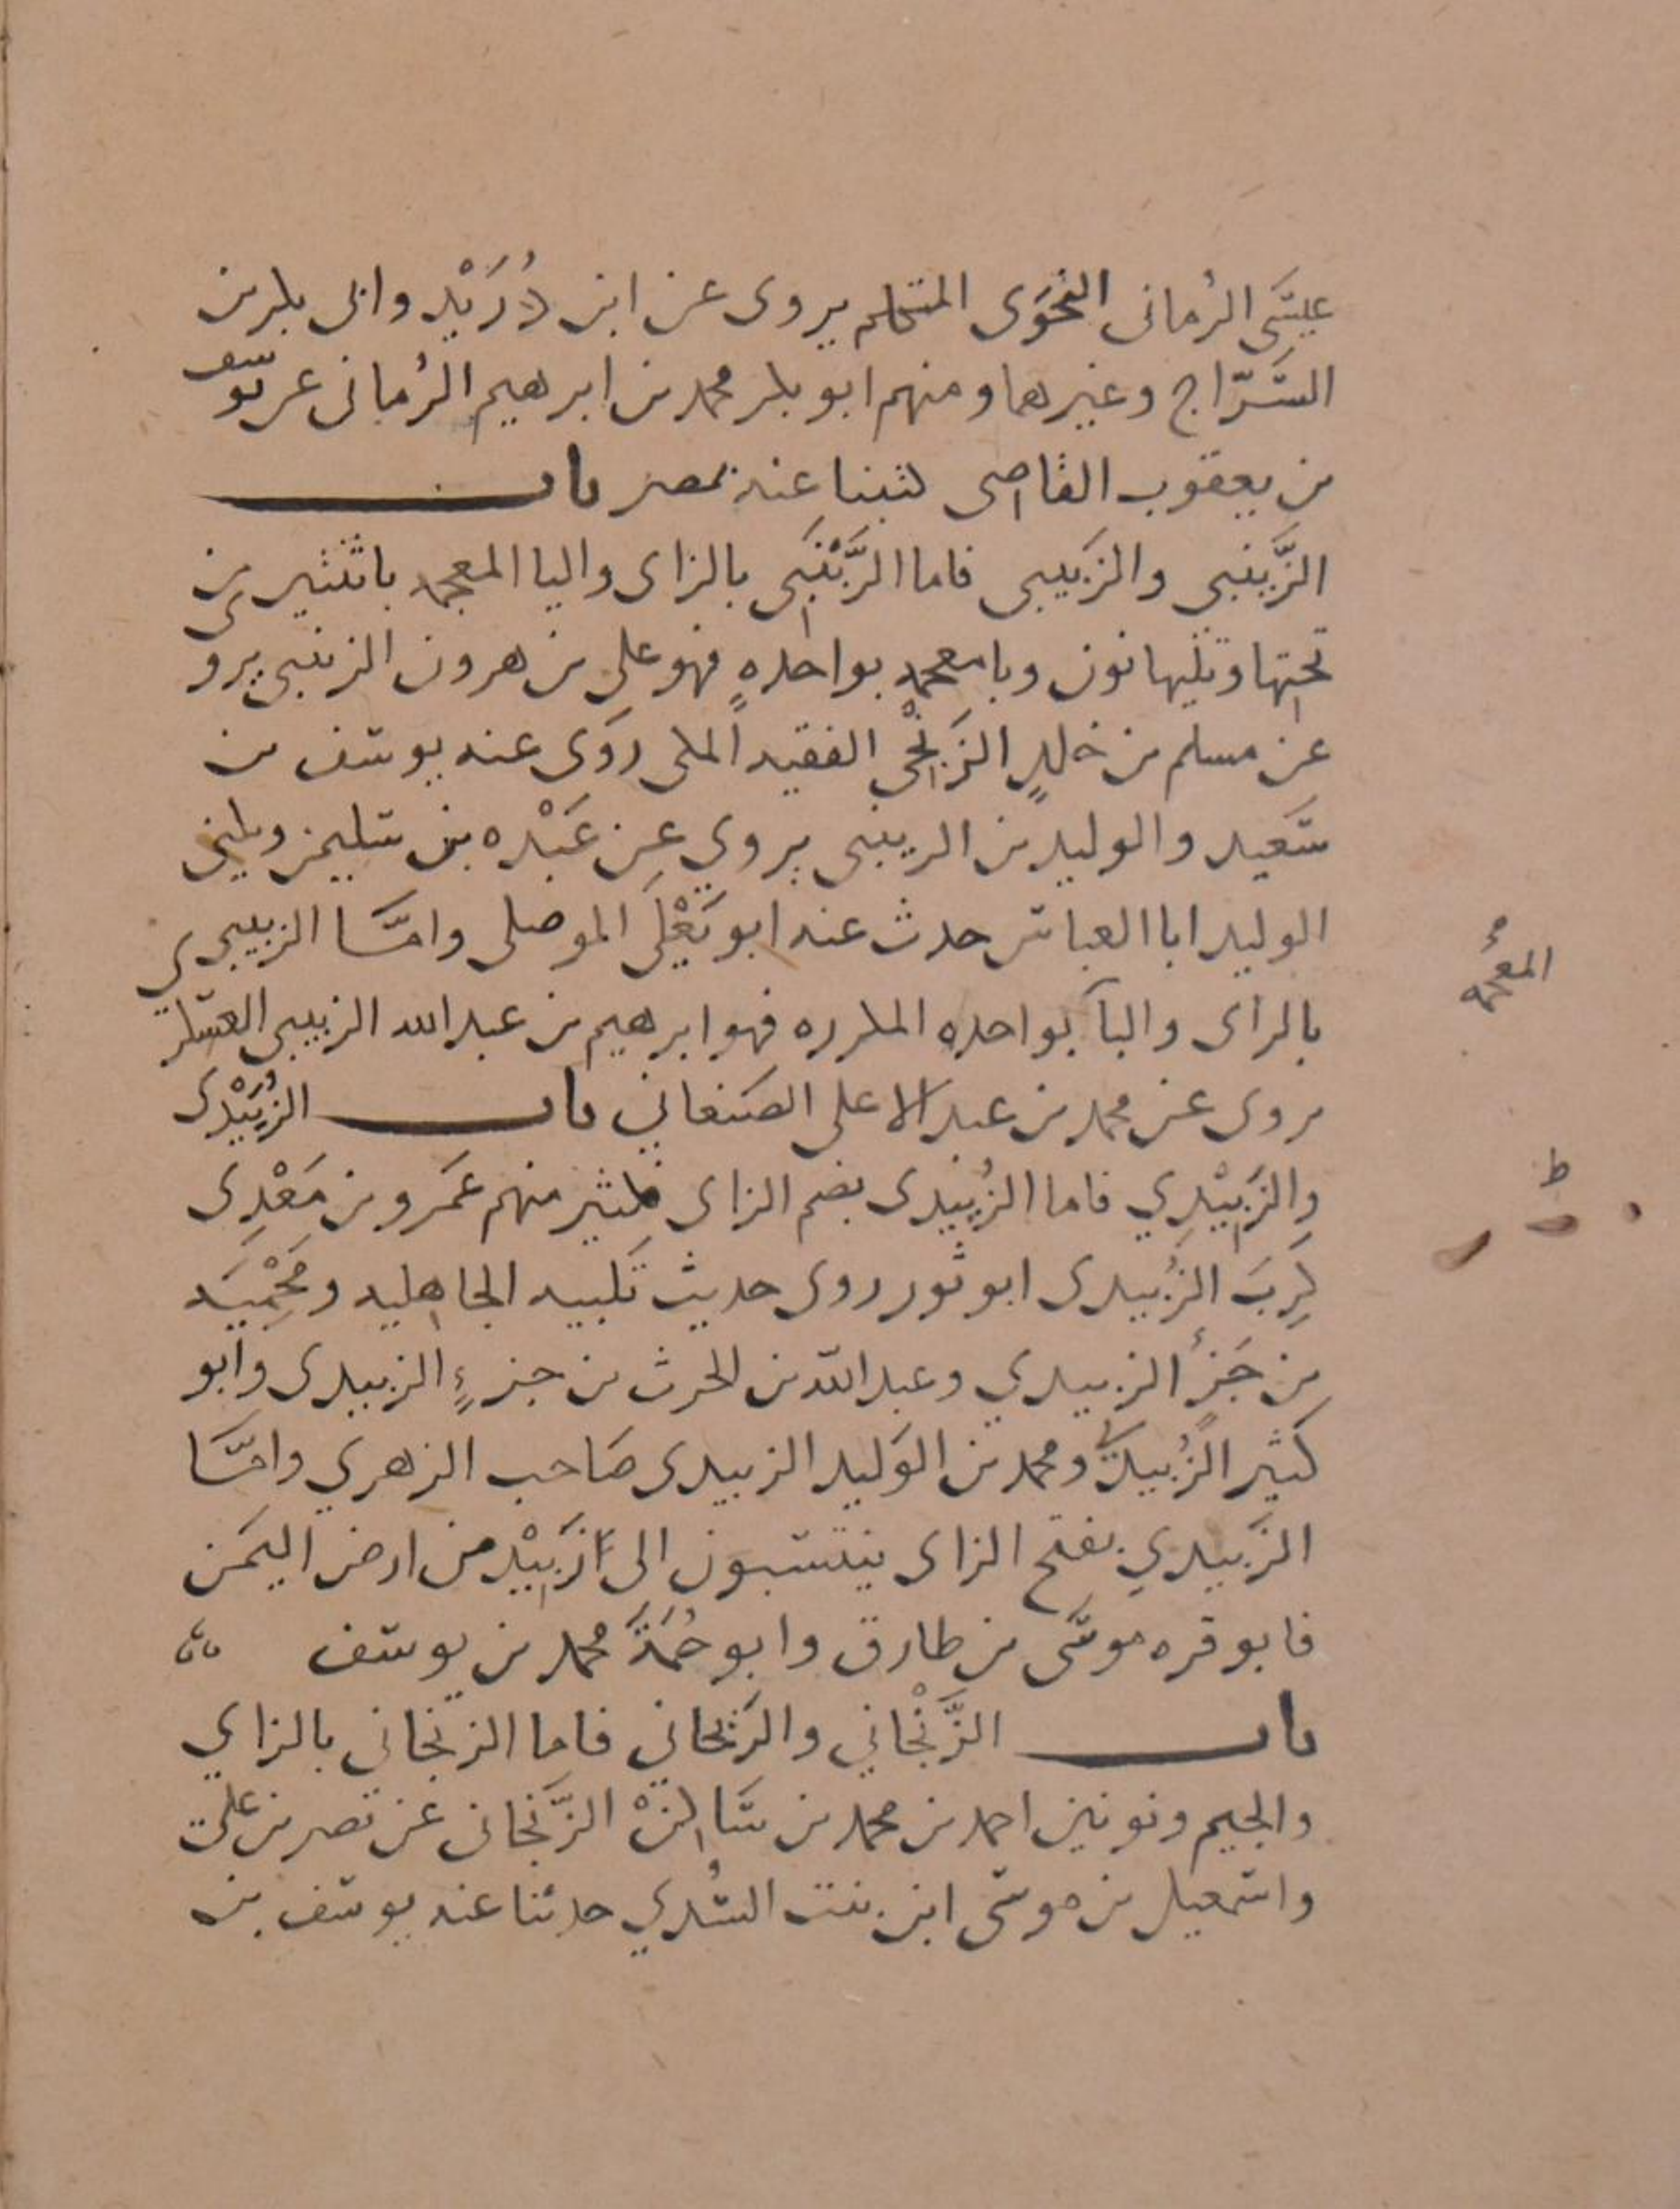 عيسَى الرُماني النحوَى المتكلم يروى عن ابن دُرَيْد وابى بكر بن
السَّرّاج وغيرهما ومنهم ابو بكر محمد بن ابرهيم الرُماني عن يوسف
بن يعقوب القاضي كتبنا عنه بمصر باب
الزَّينبي والزَبيبي فاما الزَّيْنَبَى بالزاى واليا المعجمه باثنتين من
تحتها وتليها نون وبا معجمه بواحدهٍ فهو على بن هرون الزينبي يروى
عن مسلم بن خلدٍ الزَنْجي الفقيه المكى روَى عنه يوسف بن
سَعيد والوليد بن الزينبى يروي عن عَبْده بن سليمن ويكنى
الوليد ابا العباس حدث عنه ابو يَعْلَى الموصلى وامَّا الزبيبي
بالزاى والبآ بواحده المكرره فهو ابرهيم بن عبد الله الزبيبى العسكري
المعجمه
يروى عن محمد بن عبد الاعلى الصنعاني باب الزُبَيْدى
والزَبيْدِي فاما الزُبيدى بضم الزاى فكثير منهم عَمَرو بن مَعْدِى
كَرِبَ الزُبيدى ابو ثور روى حديث تَلبيه الجاهليه ومَحْمِيَه
بن جَزْءٍ الزبيدي وعبد الله بن الحرث بن جزءٍ الزبيدى وابو
كثير الزُبيدىّ ومحمد بن الوَليد الزبيدى صَاحب الزهري وامَّا
الزَبيدي بفتح الزاى ينتسبون الى زَبيْد من ارض اليمَن
فابو قره موسَى بن طارق وابو حُمَةَ محمد بن يوسف
باب الزَّنْجاني والرَيحاني فاما الزنجاني بالزاي
والجيم ونونين احمد بن محمد بن سَاكنْ الزَّنجاني عن نصر بن على
واسمعيل بن موسَى ابن بنت السُدي حدثنا عنه يوسف بن